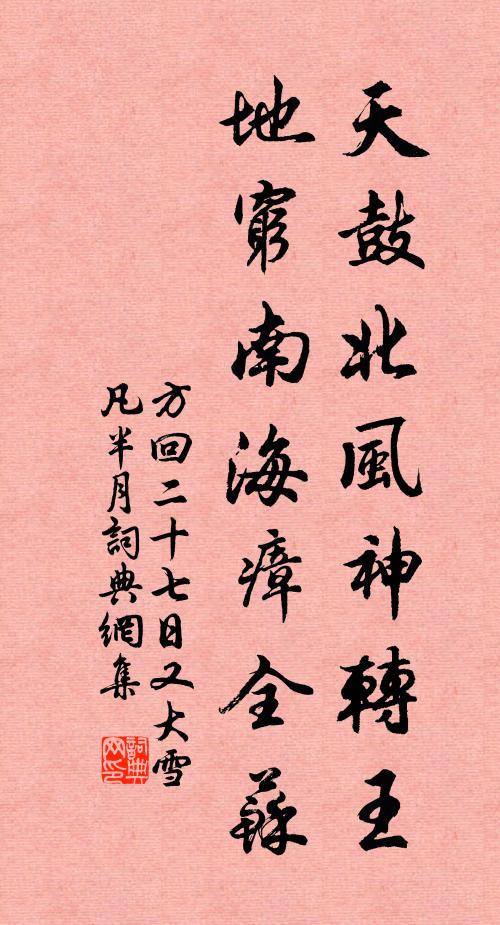 天鼓北風神轉王
地窮南海瘴全蘇
方回二十七日又大雪
凡半月詞典網集
詞典
网印